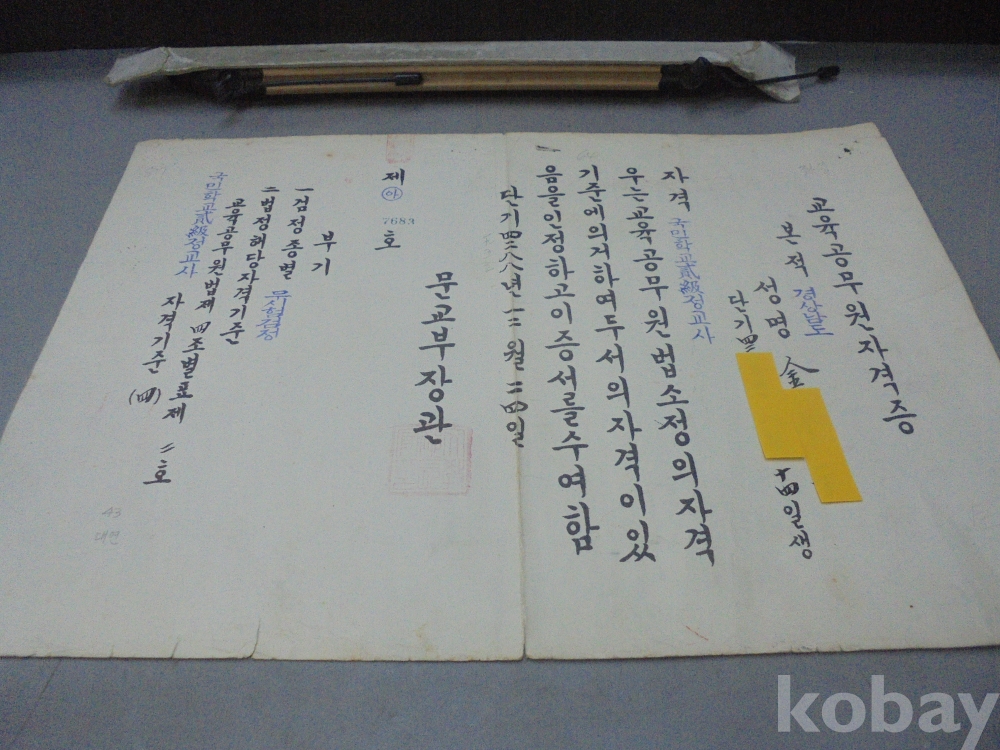 교육공무원자격증
본적 경상남도
성명 金
단기四二
十四일생
자격 국민학교貳級정교사
우는교육공무원법소정의자격
기준에의거하여두서의자격이있
음을인정하고이증서를수여함
단기四二八八년一二월二四일
문교부장관
제 아 7683 호
부기
一 검정종별 무시험검정
二 법정해당자격기준
교육공무원법제四조별표제二호
국민학교貳級정교사 자격기준 (四)
43
대연
kobay